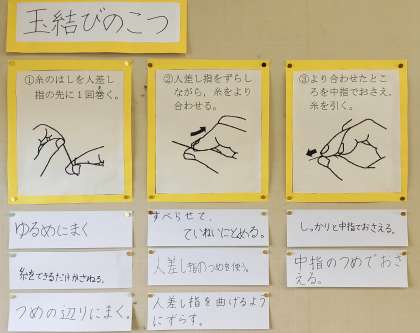 玉結びのこつ
①糸のはしを人差し
指の先に1回巻く。
②人差し指をずらし
ながら，糸をより
合わせる。
③より合わせたとこ
ろを中指でおさえ，
糸を引く。
ゆるめにまく
糸をできるだけかさねる。
つめの辺りにまく。
すべらせて、
ていねいにとめる。
人差し指のつめを使う。
人差し指を曲げるよう
にずらす。
しっかりと中指でおさえる。
中指のつめでおさ
える。